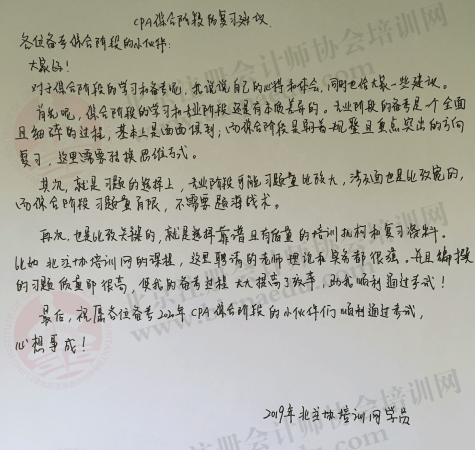 CPA综合阶段的复习建议
各位备考综合阶段的小伙伴:
大家好!
对于综合阶段的学习和备考呢,我说说自己的心得和体会,同时也给大家一些建议。
首先呢,综合阶段的学习和专业阶段还是有本质差异的。专业阶段的备考是个全面
且细碎的过程,基本上是面面俱到;而综合阶段是朝着规整且重点突出的方向
复习,这里需要转换思维方式。
其次,就是习题的选择上,专业阶段可能习题量比较大,涉及面也是比较宽的,
而综合阶段习题量有限,不需要题海战术。
再次,也是比较关键的,就是选择靠谱且有质量的培训机构和复习资料。
比如北注协培训网的课程,这里聘请的老师理论和实务都很强,并且编撰
的习题质量即很高,使我的备考过程大大提高了效率,助我顺利通过考试!
最后,祝愿各位备考2020年CPA综合阶段的小伙伴们顺利通过考试,
心想事成!
2019年北注协培训网学员